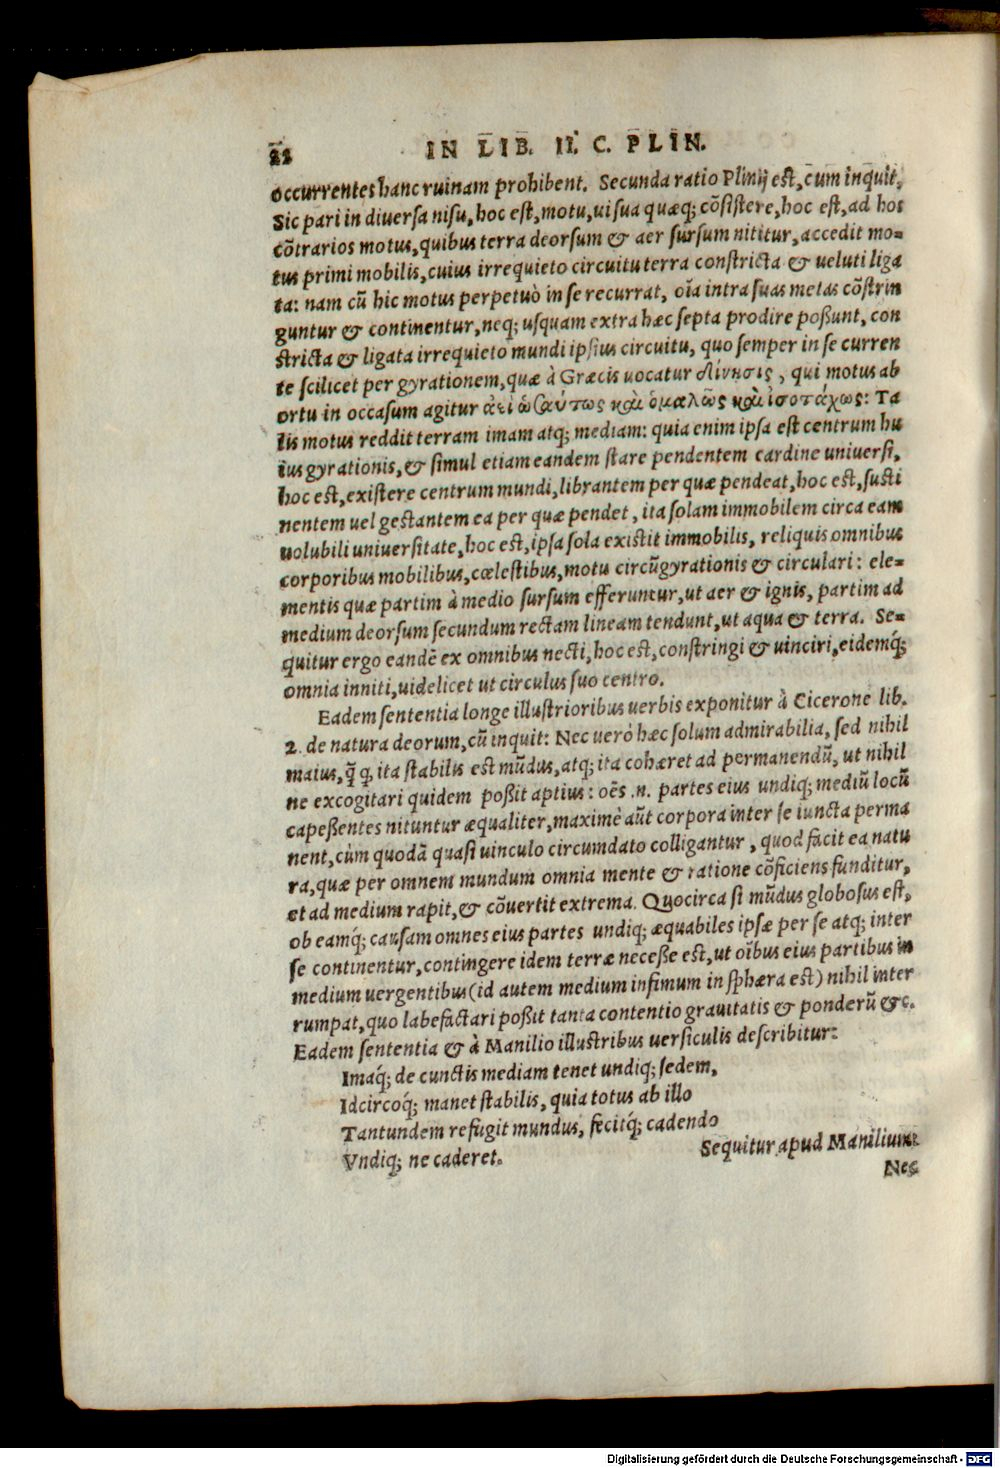 22 IN LIB. II. C. PLIN.
occurrentes hanc ruinam prohibent. Secunda ratio Plinij est, cum inquit,
Sic pari in diuersa nisu, hoc est, motu, ui sua quæq; cõsistere, hoc est, ad hos
cõtrarios motus, quibus terra deorsum & aer sursum nititur, accedit mo-
tus primi mobilis, cuius irrequieto circuitu terra constricta & ueluti liga
ta: nam cũ hic motus perpetuò in se recurrat, oĩa intra suas metas cõstrin
guntur & continentur, neq; usquam extra hæc septa prodire poßunt, con
stricta & ligata irrequieto mundi ipsius circuitu, quo semper in se curren
te scilicet per gyrationem, quæ à Græcis uocatur δίνησις, qui motus ab
ortu in occasum agitur ἀεὶ ὡσαύτως καὶ ὁμαλῶς καὶ ἰσοτάχως: Ta
lis motus reddit terram imam atq; mediam: quia enim ipsa est centrum hu
ius gyrationis, & simul etiam eandem stare pendentem cardine uniuersi,
hoc est, existere centrum mundi, librantem per quæ pendeat, hoc est, susti
nentem uel gestantem ea per quæ pendet, ita solam immobilem circa eam
uolubili uniuersitate, hoc est, ipsa sola existit immobilis, reliquis omnibus
corporibus mobilibus, cœlestibus, motu circũgyrationis & circulari: ele-
mentis quæ partim à medio sursum efferuntur, ut aer & ignis, partim ad
medium deorsum secundum rectam lineam tendunt, ut aqua & terra. Se-
quitur ergo eandẽ ex omnibus necti, hoc est, constringi & uinciri, eidemq́;
omnia inniti, uidelicet ut circulus suo centro.
Eadem sententia longe illustrioribus uerbis exponitur à Cicerone lib.
2. de natura deorum, cũ inquit: Nec uerò hæc solum admirabilia, sed nihil
maius, q̃ q, ita stabilis est mũdus, atq; ita cohæret ad permanendũ, ut nihil
ne excogitari quidem poßit aptius: oẽs .n. partes eius undiq; mediũ locũ
capeßentes nituntur æqualiter, maximè aũt corpora inter se iuncta perma
nent, cùm quodã quasi uinculo circumdato colligantur, quod facit ea natu
ra, quæ per omnem mundum omnia mente & ratione cõficiens funditur,
et ad medium rapit, & cõuertit extrema. Quocirca si mũdus globosus est,
ob eamq́; causam omnes eius partes undiq; æquabiles ipsæ per se atq; inter
se continentur, contingere idem terræ neceße est, ut oĩbus eius partibus in
medium uergentibus (id autem medium infimum in sphæra est) nihil inter
rumpat, quo labefactari poßit tanta contentio grauitatis & ponderũ &c.
Eadem sententia & à Manilio illustribus uersiculis describitur:
Imaq́; de cunctis mediam tenet undiq; sedem,
Idcircoq́; manet stabilis, quia totus ab illo
Tantundem refugit mundus, fecitq́; cadendo
Vndiq; ne caderet. Sequitur apud Manilium:
Nec
Digitalisierung gefördert durch die Deutsche Forschungsgemeinschaft - DFG